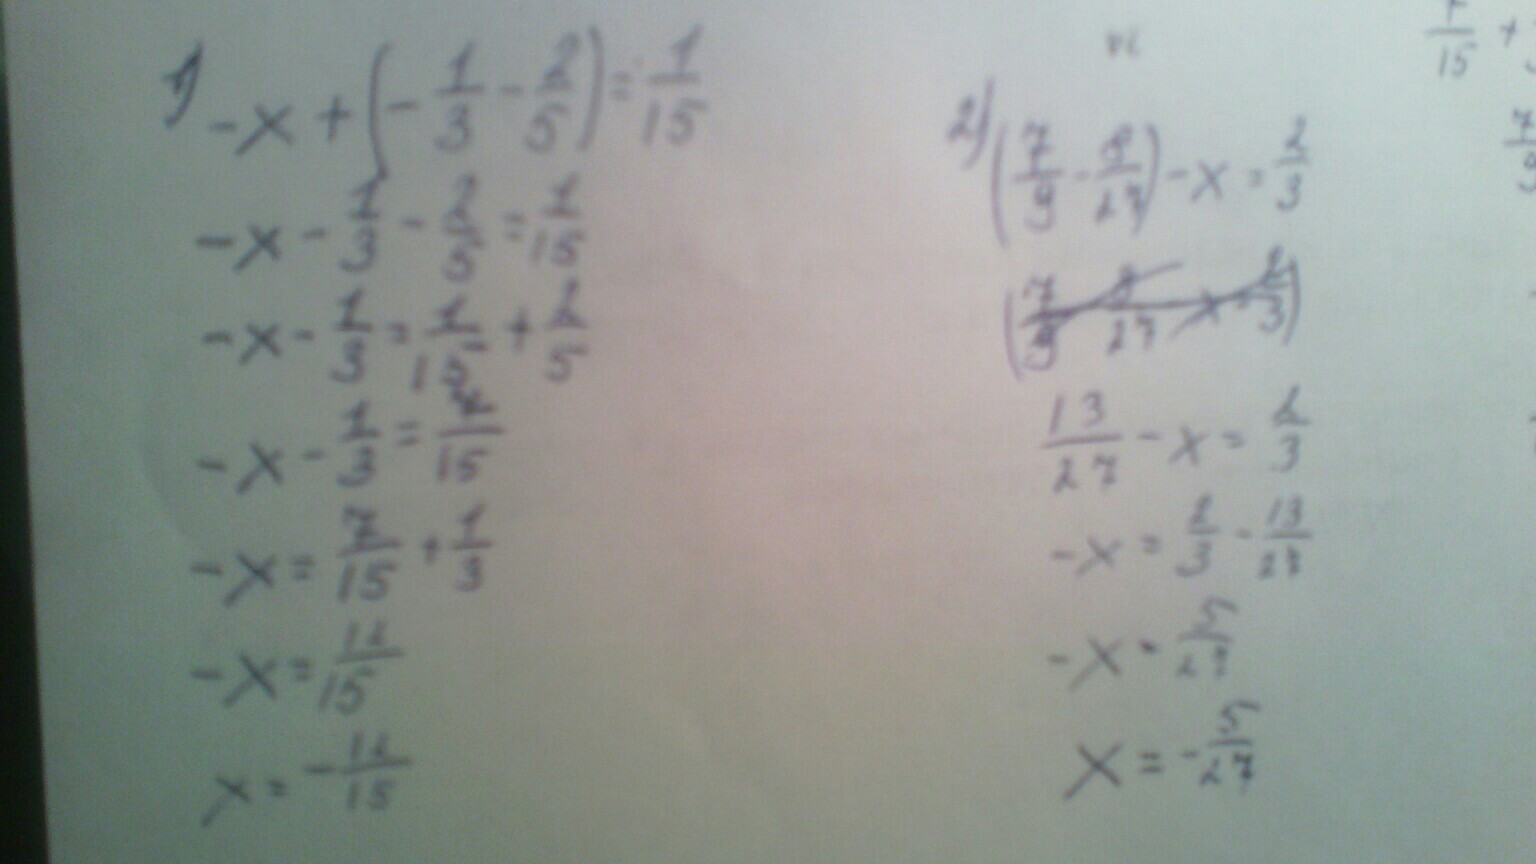 1) -x + (-1/3 - 2/5) = 1/15
-x - 1/3 - 2/5 = 1/15
-x - 1/3 = 1/15 + 2/5
-x - 1/3 = 7/15
-x = 7/15 + 1/3
-x = 12/15
x = -12/15
2) (7/9 - 8/27) - x = 2/3
13/27 - x = 2/3
-x = 2/3 - 13/27
-x = 5/27
x = -5/27
/15 +
7/9